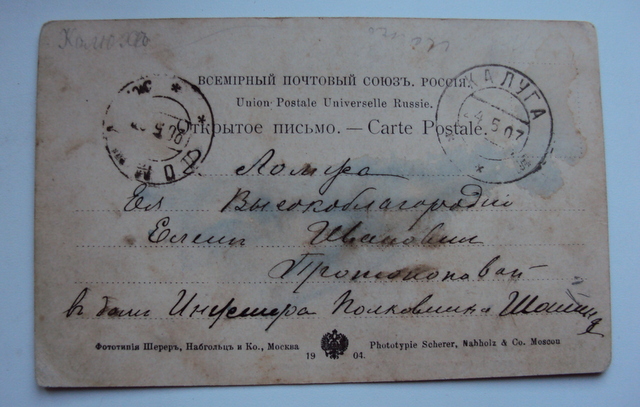 ВСЕМІРНЫЙ ПОЧТОВЫЙ СОЮЗЪ. РОССІЯ.
Union Postale Universelle Russie.
Открытое письмо. — Carte Postale.
КАЛУГА
4 5 07
г. Ломжа
Ея Высокоблагородію
Елены Ивановны
Протопоповой
въ домъ Инженера Полковника
Фототипія Шереръ, Набгольцъ и Ко., Москва
1904.
Phototypie Scherer, Nabholz & Co. Moscou